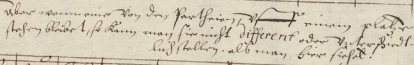 Aber wann eine von den Partheien, V einem platze
stehen bleibet, so kann man sie nicht different oder Unterschiedt-
lich stellen. als man hier siehet.